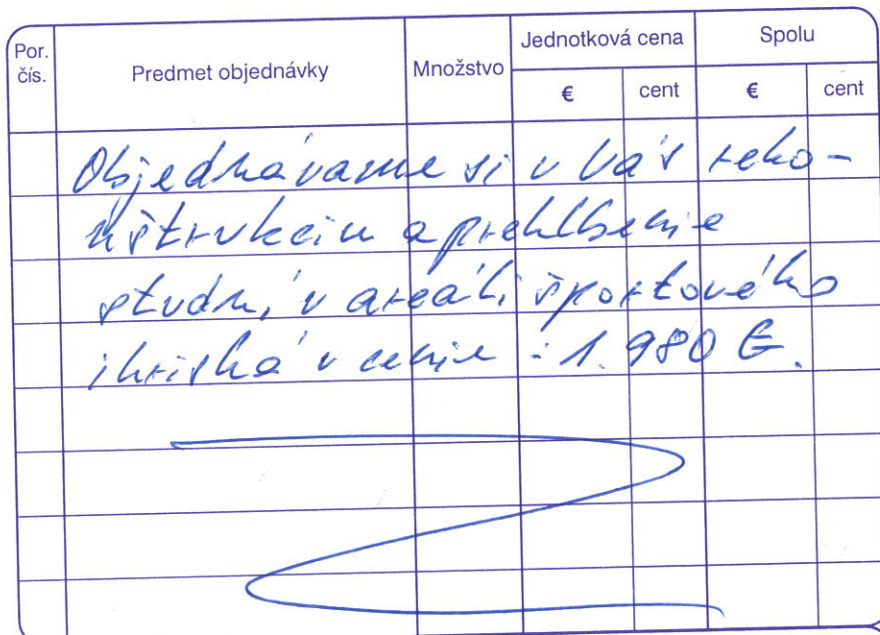 Por. čís.
Predmet objednávky
Množstvo
Jednotková cena
Spolu
€
cent
€
cent
Objednávame si u Vás reko-
nštrukciu a prehlbenie
studní v areáli športového
ihriská v cenie : 1.980 €.